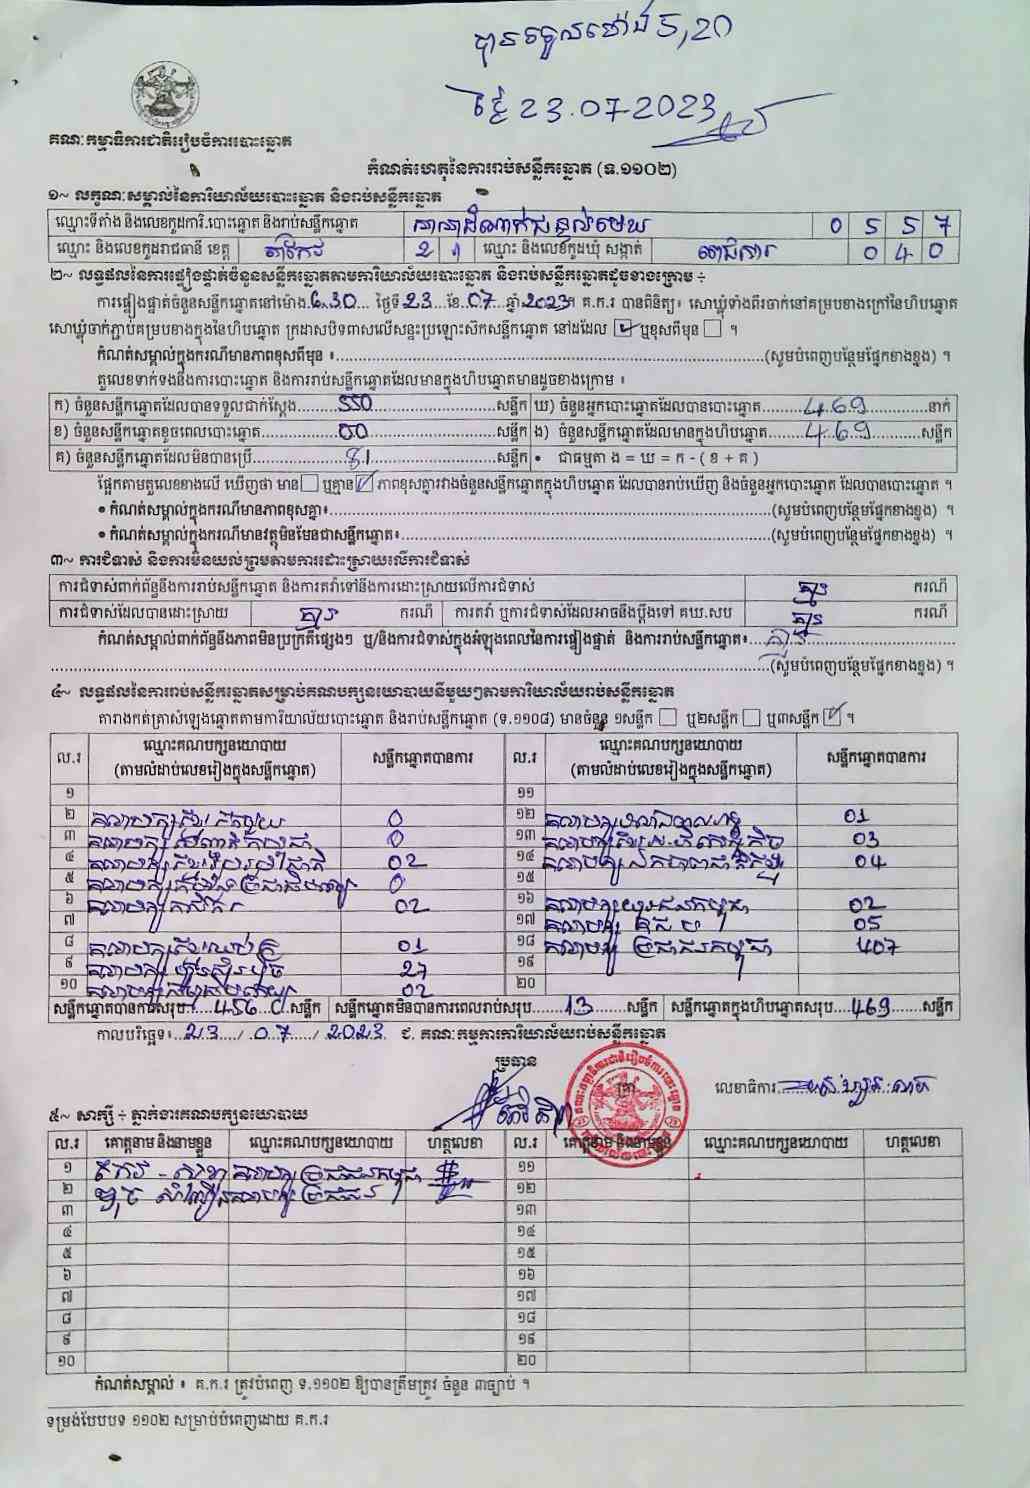 បានទទួលម៉ោង 5,20
ថ្ងៃ 23.07.2023
គណៈកម្មាធិការជាតិរៀបចំការបោះឆ្នោត
កំណត់ហេតុនៃការរាប់សន្លឹកឆ្នោត (ទ.១១០២)
១~ លក្ខណៈសម្គាល់នៃការិយាល័យបោះឆ្នោត និងរាប់សន្លឹកឆ្នោត
ឈ្មោះទីតាំង និងលេខកូដការិ.បោះឆ្នោត និងរាប់សន្លឹកឆ្នោត 0 5 5 7
ឈ្មោះ និងលេខកូដរាជធានី ខេត្ត តាកែវ 2 1 ឈ្មោះ និងលេខកូដឃុំ សង្កាត់ 0 4 0
២~ លទ្ធផលនៃការផ្ទៀងផ្ទាត់ចំនួនសន្លឹកឆ្នោតតាមការិយាល័យបោះឆ្នោត និងរាប់សន្លឹកឆ្នោតដូចខាងក្រោម ÷
ការផ្ទៀងផ្ទាត់ចំនួនសន្លឹកឆ្នោតនៅម៉ោង 6.30 ថ្ងៃទី 23 ខែ 07 ឆ្នាំ 2023។ គ.ក.រ បានពិនិត្យ៖ សោឃ្លុំទាំងពីរចាក់នៅគម្របខាងក្រៅនៃហិបឆ្នោត
សោឃ្លុំចាក់ភ្ជាប់គម្របខាងក្នុងនៃហិបឆ្នោត ក្រដាសបិទពាសលើសន្ទះប្រឡោះសឹកសន្លឹកឆ្នោត នៅដដែល ☑ ឬខុសពីមុន ☐ ។
កំណត់សម្គាល់ក្នុងករណីមានភាពខុសពីមុន ៖ (សូមបំពេញបន្ថែមផ្នែកខាងខ្នង) ។
តួលេខទាក់ទងនឹងការបោះឆ្នោត និងការរាប់សន្លឹកឆ្នោតដែលមានក្នុងហិបឆ្នោតមានដូចខាងក្រោម ៖
ក) ចំនួនសន្លឹកឆ្នោតដែលបានទទួលជាក់ស្តែង 550 សន្លឹក ឃ) ចំនួនអ្នកបោះឆ្នោតដែលបានបោះឆ្នោត 469 នាក់
ខ) ចំនួនសន្លឹកឆ្នោតខូចពេលបោះឆ្នោត 00 សន្លឹក ង) ចំនួនសន្លឹកឆ្នោតដែលមានក្នុងហិបឆ្នោត 469 សន្លឹក
គ) ចំនួនសន្លឹកឆ្នោតដែលមិនបានប្រើ 81 សន្លឹក • ជាធម្មតា ង = ឃ = ក - ( ខ + គ )
ផ្អែកតាមតួលេខខាងលើ ឃើញថា មាន ☐ ឬគ្មាន ☑ ភាពខុសគ្នារវាងចំនួនសន្លឹកឆ្នោតក្នុងហិបឆ្នោត ដែលបានរាប់ឃើញ និងចំនួនអ្នកបោះឆ្នោត ដែលបានបោះឆ្នោត ។
• កំណត់សម្គាល់ក្នុងករណីមានភាពខុសគ្នា៖ (សូមបំពេញបន្ថែមផ្នែកខាងខ្នង) ។
• កំណត់សម្គាល់ក្នុងករណីមានវត្ថុមិនមែនជាសន្លឹកឆ្នោត៖ (សូមបំពេញបន្ថែមផ្នែកខាងខ្នង) ។
៣~ ការជំទាស់ និងការមិនយល់ព្រមតាមការដោះស្រាយលើការជំទាស់
ការជំទាស់ពាក់ព័ន្ធនឹងការរាប់សន្លឹកឆ្នោត និងការតវ៉ាទៅនឹងការដោះស្រាយលើការជំទាស់ គ្មាន ករណី
ការជំទាស់ដែលបានដោះស្រាយ គ្មាន ករណី ការតវ៉ា ឬការជំទាស់ដែលអាចនឹងប្តឹងទៅ គឃ.សប គ្មាន ករណី
កំណត់សម្គាល់ពាក់ព័ន្ធនឹងភាពមិនប្រក្រតីផ្សេងៗ ឬ/និងការជំទាស់ក្នុងអំឡុងពេលនៃការផ្ទៀងផ្ទាត់ និងការរាប់សន្លឹកឆ្នោត៖ គ្មាន
(សូមបំពេញបន្ថែមផ្នែកខាងខ្នង) ។
៤~ លទ្ធផលនៃការរាប់សន្លឹកឆ្នោតសម្រាប់គណបក្សនយោបាយនីមួយៗតាមការិយាល័យរាប់សន្លឹកឆ្នោត
តារាងកត់ត្រាសំឡេងឆ្នោតតាមការិយាល័យបោះឆ្នោត និងរាប់សន្លឹកឆ្នោត (ទ.១១០៨) មានចំនួន ១សន្លឹក ☐ ឬ២សន្លឹក ☐ ឬ៣សន្លឹក ☑ ។
ល.រ ឈ្មោះគណបក្សនយោបាយ (តាមលំដាប់លេខរៀងក្នុងសន្លឹកឆ្នោត) សន្លឹកឆ្នោតបានការ ល.រ ឈ្មោះគណបក្សនយោបាយ (តាមលំដាប់លេខរៀងក្នុងសន្លឹកឆ្នោត) សន្លឹកឆ្នោតបានការ
១ ១១
២ 0 ១២ 01
៣ 0 ១៣ 03
៤ គណបក្សខ្មែររួបរួមជាតិ 02 ១៤ 04
៥ 0 ១៥
៦ គណបក្សកសិករ 02 ១៦ គណបក្សយុវជនកម្ពុជា 02
៧ ១៧ 05
៨ 01 ១៨ គណបក្ស ប្រជាជនកម្ពុជា 407
៩ គណបក្ស ហ៊្វុនស៊ិនប៉ិច 27 ១៩
១០ 02 ២០
សន្លឹកឆ្នោតបានការសរុប 456 សន្លឹក សន្លឹកឆ្នោតមិនបានការពេលរាប់សរុប 13 សន្លឹក សន្លឹកឆ្នោតក្នុងហិបឆ្នោតសរុប 469 សន្លឹក
កាលបរិច្ឆេទ៖ 23 / 07 / 2023 ជ. គណៈកម្មការការិយាល័យរាប់សន្លឹកឆ្នោត
ប្រធាន
លេខាធិការ
៥~ សាក្សី ÷ ភ្នាក់ងារគណបក្សនយោបាយ
ល.រ គោត្តនាម និងនាមខ្លួន ឈ្មោះគណបក្សនយោបាយ ហត្ថលេខា ល.រ គោត្តនាម និងនាមខ្លួន ឈ្មោះគណបក្សនយោបាយ ហត្ថលេខា
១ គណបក្ស ប្រជាជនកម្ពុជា ១១
២ គណបក្ស ប្រជាជន ១២
៣ ១៣
៤ ១៤
៥ ១៥
៦ ១៦
៧ ១៧
៨ ១៨
៩ ១៩
១០ ២០
កំណត់សម្គាល់ ៖ គ.ក.រ ត្រូវបំពេញ ទ.១១០២ ឱ្យបានត្រឹមត្រូវ ចំនួន ៣ច្បាប់ ។
ទម្រង់បែបបទ ១១០២ សម្រាប់បំពេញដោយ គ.ក.រ